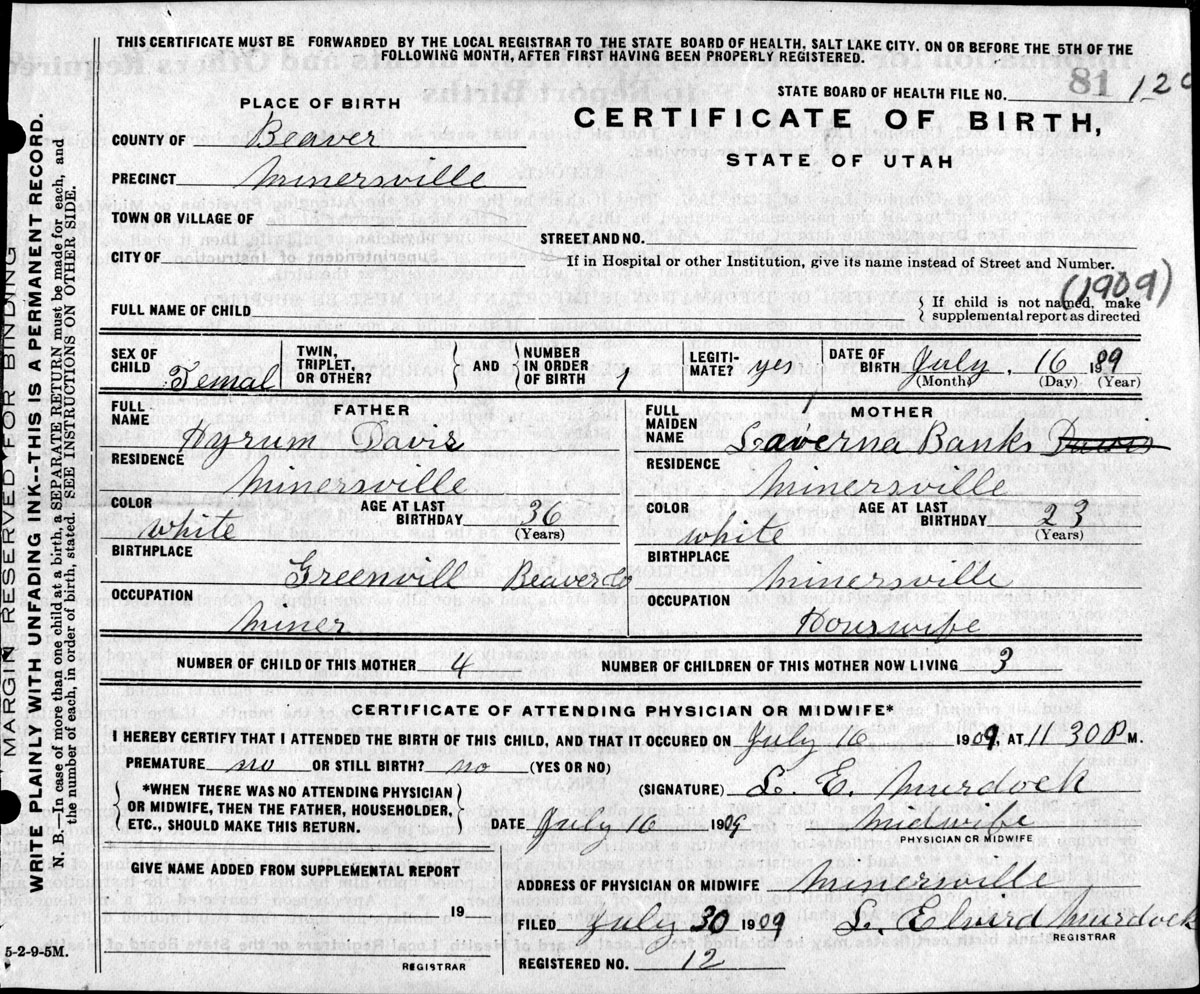 THIS CERTIFICATE MUST BE FORWARDED BY THE LOCAL REGISTRAR TO THE STATE BOARD OF HEALTH, SALT LAKE CITY. ON OR BEFORE THE 5TH OF THE
FOLLOWING MONTH, AFTER FIRST HAVING BEEN PROPERLY REGISTERED.
STATE BOARD OF HEALTH FILE NO. 81
PLACE OF BIRTH
CERTIFICATE OF BIRTH,
STATE OF UTAH
COUNTY OF Beaver
PRECINCT Minersville
TOWN OR VILLAGE OF
STREET AND NO.
CITY OF
If in Hospital or other Institution, give its name instead of Street and Number.
(1909)
FULL NAME OF CHILD
{ If child is not named, make
supplemental report as directed
SEX OF CHILD Femal TWIN, TRIPLET, OR OTHER? } AND { NUMBER IN ORDER OF BIRTH 1 LEGITIMATE? yes DATE OF BIRTH July. 16 1909
(Month) (Day) (Year)
FATHER
FULL NAME Hyrum Davis
RESIDENCE Minersville
COLOR white AGE AT LAST BIRTHDAY 36 (Years)
BIRTHPLACE Greenvill Beaver Co
OCCUPATION Miner
MOTHER
FULL MAIDEN NAME Laverna Banks Davis
RESIDENCE Minersville
COLOR white AGE AT LAST BIRTHDAY 23 (Years)
BIRTHPLACE Minersville
OCCUPATION Houswife
NUMBER OF CHILD OF THIS MOTHER 4 NUMBER OF CHILDREN OF THIS MOTHER NOW LIVING 3
CERTIFICATE OF ATTENDING PHYSICIAN OR MIDWIFE*
I HEREBY CERTIFY THAT I ATTENDED THE BIRTH OF THIS CHILD, AND THAT IT OCCURED ON July 16 1909, AT 11 30 P M.
PREMATURE no OR STILL BIRTH? no (YES OR NO)
{ *WHEN THERE WAS NO ATTENDING PHYSICIAN
OR MIDWIFE, THEN THE FATHER, HOUSEHOLDER,
ETC., SHOULD MAKE THIS RETURN. }
(SIGNATURE) L. E. Murdock
DATE July 16 1909 Midwife
PHYSICIAN OR MIDWIFE
GIVE NAME ADDED FROM SUPPLEMENTAL REPORT
19
REGISTRAR
ADDRESS OF PHYSICIAN OR MIDWIFE Minersville
FILED July 30 1909 L. Elvird Murdock
REGISTRAR
REGISTERED NO. 12
5-2-9-5M.
MARGIN RESERVED FOR BINDING
WRITE PLAINLY WITH UNFADING INK--THIS IS A PERMANENT RECORD.
N. B.—In case of more than one child at a birth, a SEPARATE RETURN must be made for each, and
the number of each, in order of birth, stated. SEE INSTRUCTIONS ON OTHER SIDE.